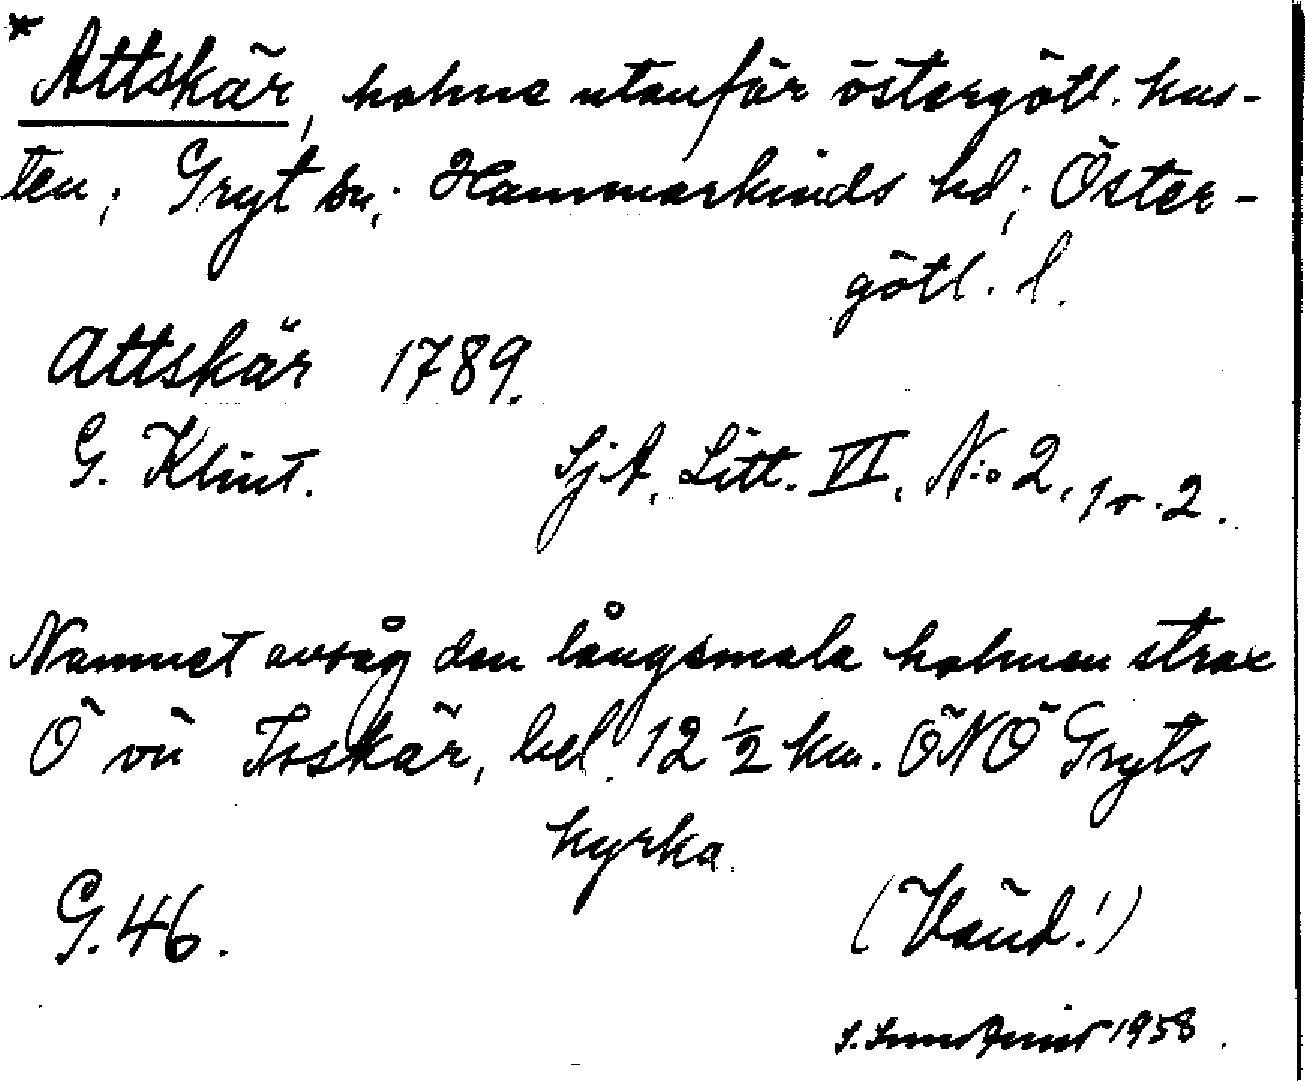 * Attskär, holme utanför östergötl. kus-
ten; Gryt sn; Hammarkinds hd; Öster-
götl. l.
Attskär 1789.
G. Klint. SjA, Litt. VI, N:o 2, 1 o. 2.
Namnet avsåg den långsmala holmen strax
Ö vü Torskär, bel. 12 1/2 km. ÖNÖ Gryts
kyrka.
G. 46. (Vänd!)
1958.